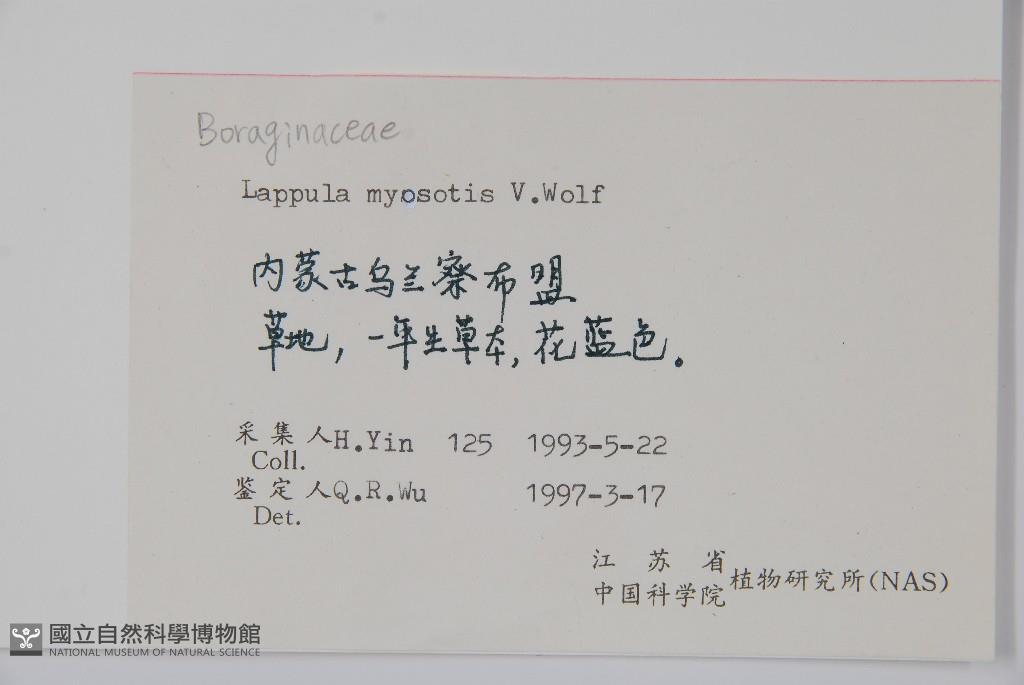 Boraginaceae
Lappula myosotis V.Wolf
内蒙古乌兰察布盟
草地，一年生草本，花蓝色.
采集人 H.Yin 125 1993-5-22
Coll.
鉴定人 Q.R.Wu 1997-3-17
Det.
江苏省
中国科学院 植物研究所(NAS)
國立自然科學博物館
NATIONAL MUSEUM OF NATURAL SCIENCE